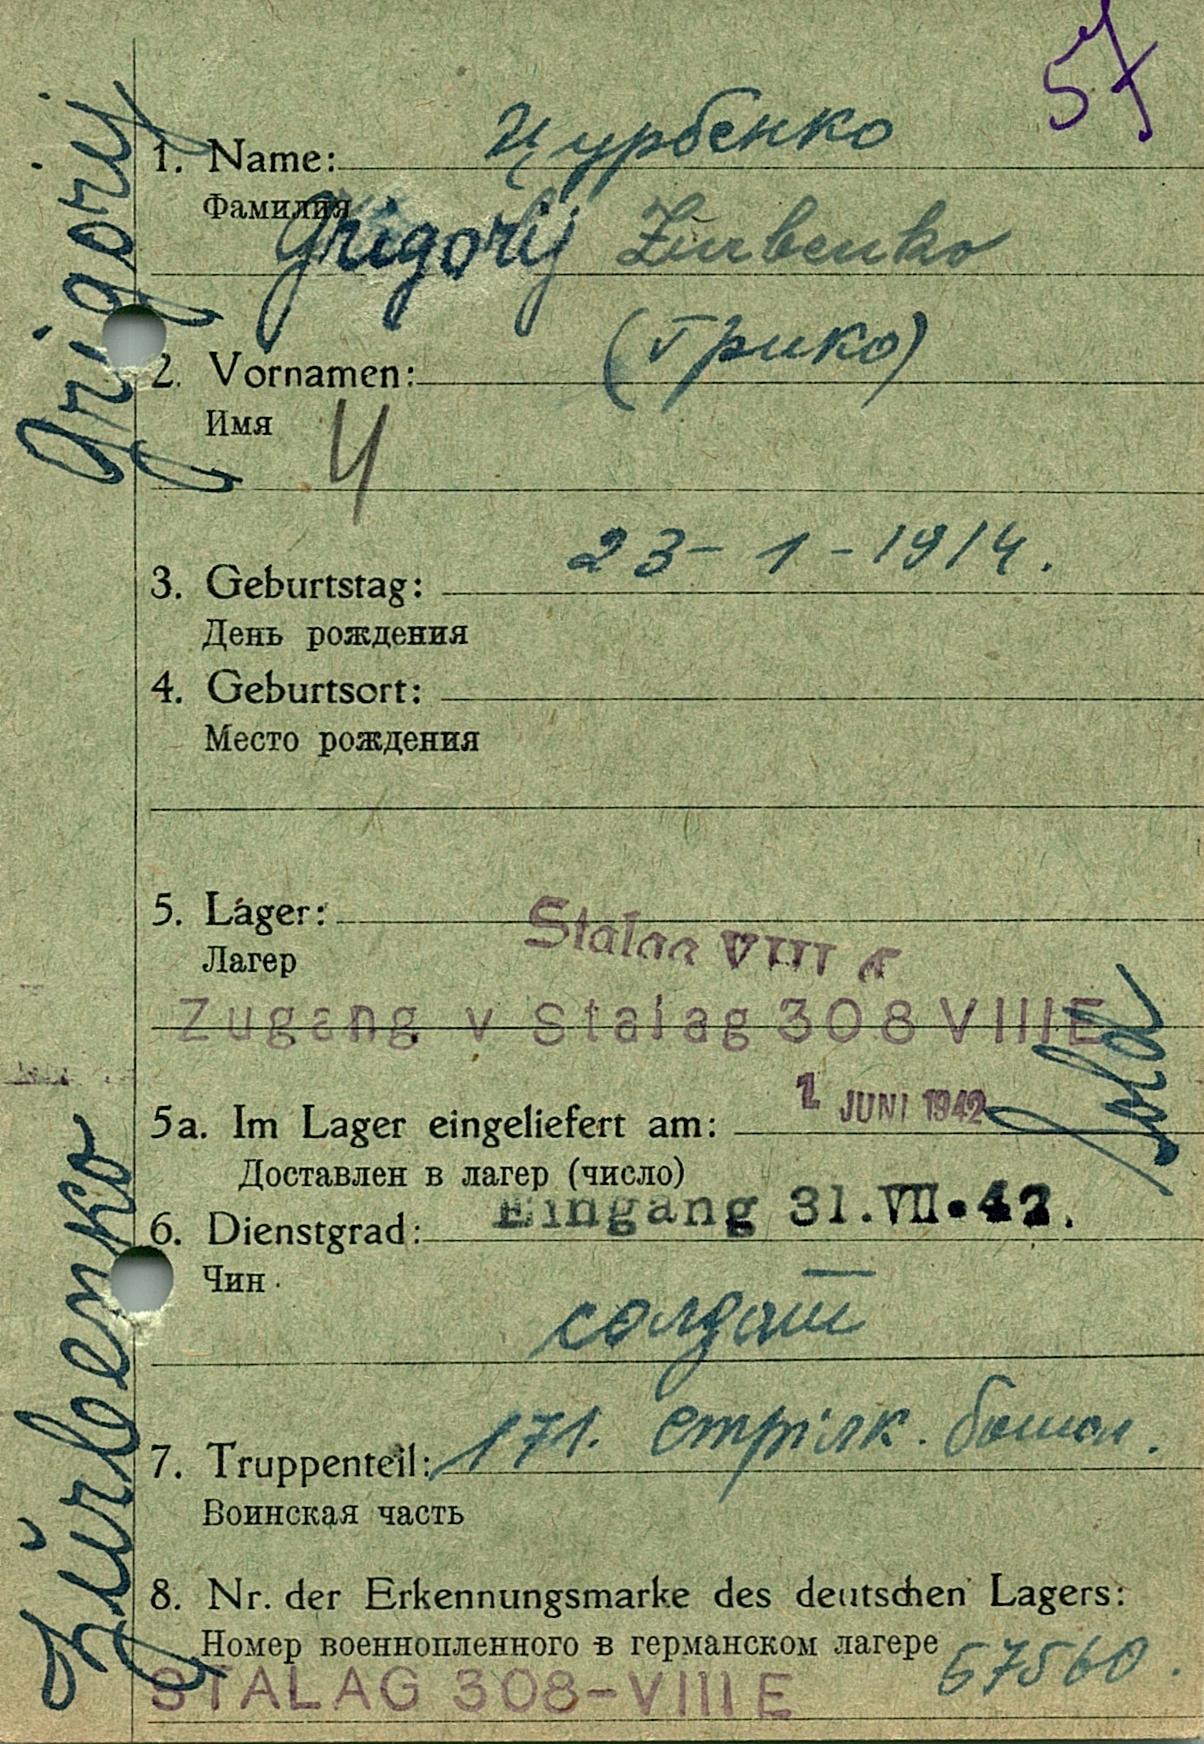 57
1. Name: Цурбенко
Фамилия
Grigorij Zurbenko
2. Vornamen: (Грико)
Имя
Ц
3. Geburtstag: 23 - 1 - 1914.
День рождения
4. Geburtsort:
Место рождения
5. Lager: Stalag VIII
Лагер
Zugang v Stalag 308 VIIIE
5a. Im Lager eingeliefert am: 1 JUNI 1942
Доставлен в лагер (число)
Eingang 31.VII.42.
6. Dienstgrad:
Чин
солдат
7. Truppenteil: 171. стрілк. батал.
Воинская часть
8. Nr. der Erkennungsmarke des deutschen Lagers:
Номер военнопленного в германском лагере 57560.
STALAG 308-VIII E
Zŭrbenko Grigorij
Sold